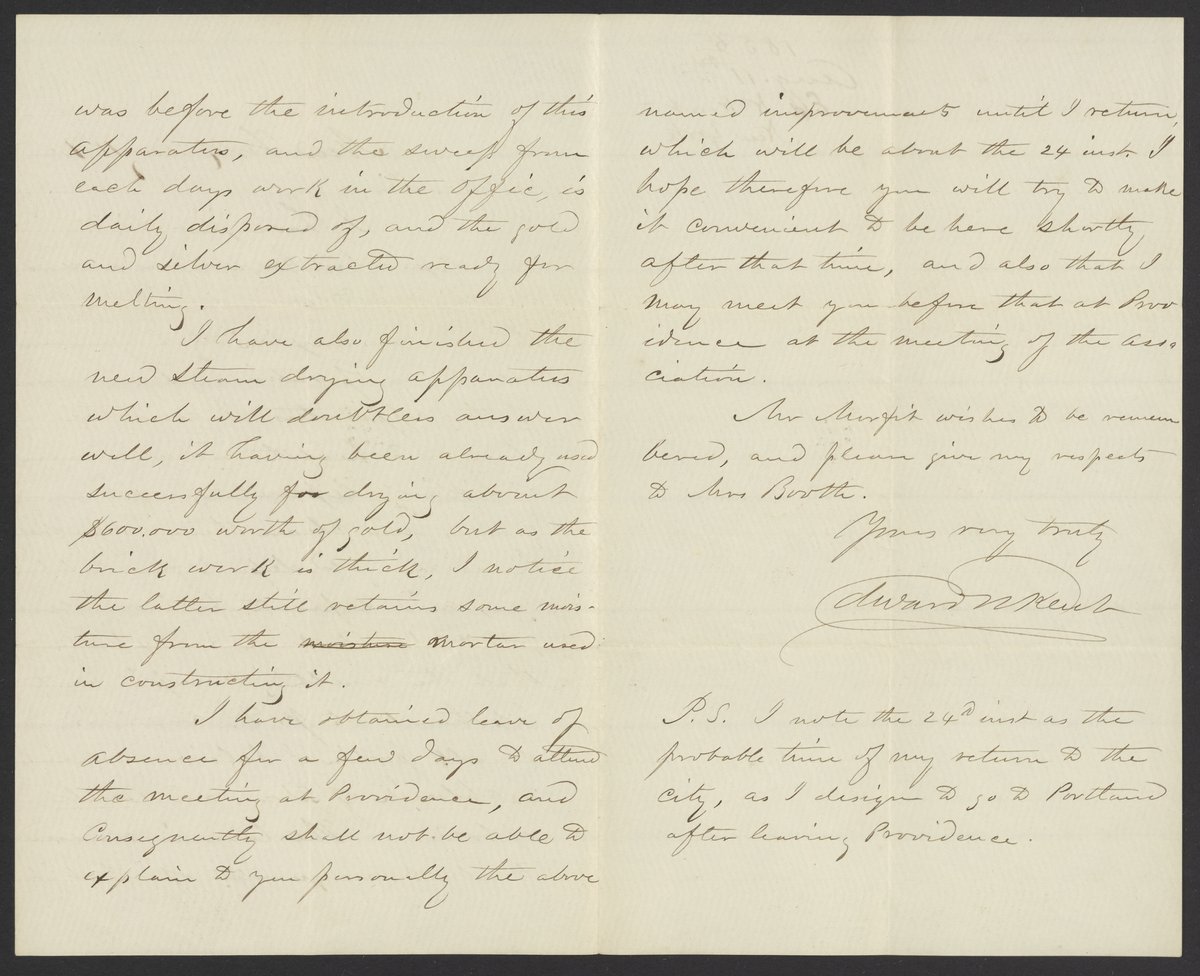 was before the introduction of this
apparatus, and the sweep from
each days work in the offic, is
daily disposed of, and the gold
and silver extracted ready for
melting.
I have also finished the
new steam drying apparatus
which will doubtless answer
well, it having been already used
successfully for drying about
$600.000 worth of gold, but as the
brick work is thick, I notice
the latter still retains some mois-
ture from the moisture mortar used
in constructing it.
I have obtained leave of
absence for a few days to attend
the meeting at Providence, and
Consequently shall not be able to
explain to you personally the above
named improvements until I return,
which will be about the 24 inst. I
hope therefore you will try to make
it convenient to be here shortly
after that time, and also that I
may meet you before that at Prov
idence at the meeting of the asso
ciation.
Mr Morfit wishes to be remem
bered, and please give my respects
to Mrs Booth.
Yours very truly
Edward N Kent
P.S. I note the 24d inst as the
probable time of my return to the
city, as I design to go to Portland
after leaving Providence.